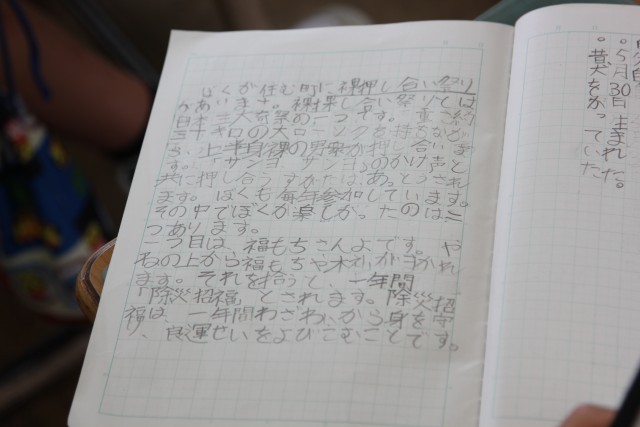 ぼくが住む町に裸押し合い祭り
があります。裸押し合い祭りとは
日本三大奇祭の一つです。重さ約
三十キロの大ローソクを持ちなが
ら、上半身裸の男衆が押し合いま
す。「サンヨ、サンヨ」のかけ声と
共に押し合うすがたは、あっとうされ
ます。ぼくも毎年参加しています。
その中でぼくが楽しかったのは二
つあります。
一つ目は、福もちさんよです。や
ねの上から福もちや木札がまかれ
ます。それを拾うと、一年間
「除災招福」とされます。除災招
福は、一年間わざわいから身を守
り、良運せいをよびこむことです。
。5月30日 生まれた。
犬をかっていた